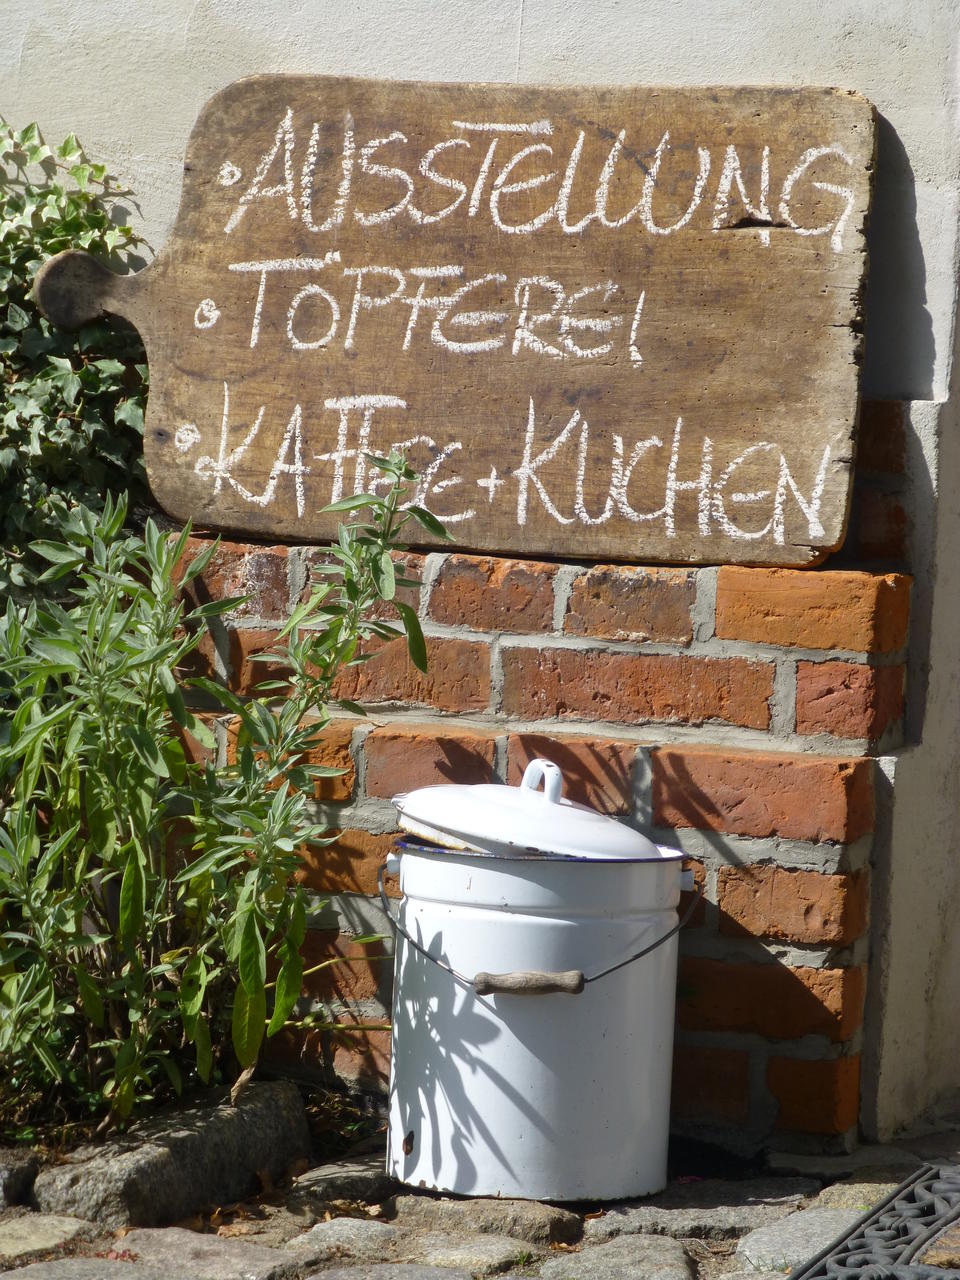 • AUSSTELLUNG
• TÖPFEREI
• KAFFEE + KUCHEN